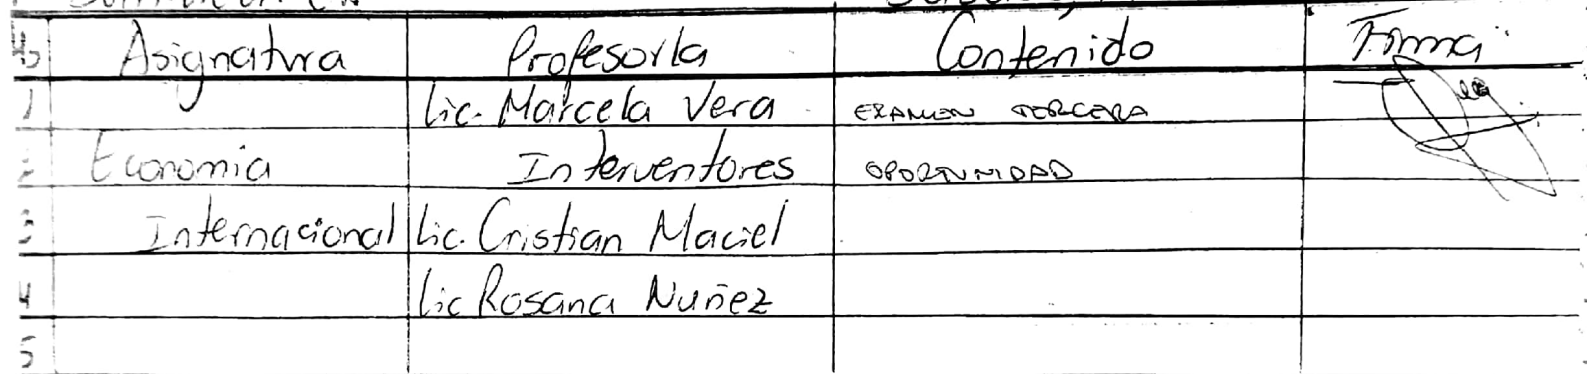 Asignatura Profesor/a Contenido Firma
1 Lic. Marcela Vera EXAMEN TERCERA
2 Economia Interventores OPORTUNIDAD
3 Internacional Lic. Cristian Maciel
4 Lic Rosana Nuñez
5